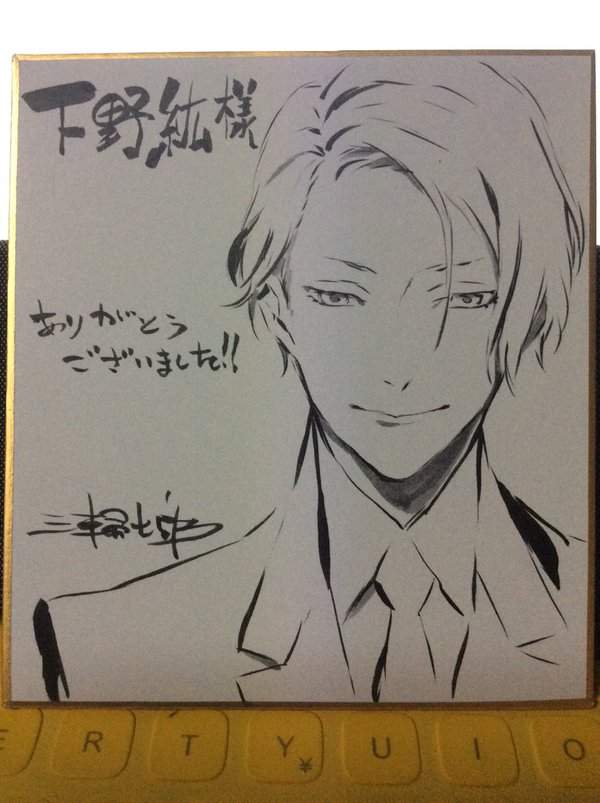 下野紘様
ありがとう
ございました!!
三輪士郎
E R T Y U I O
¥